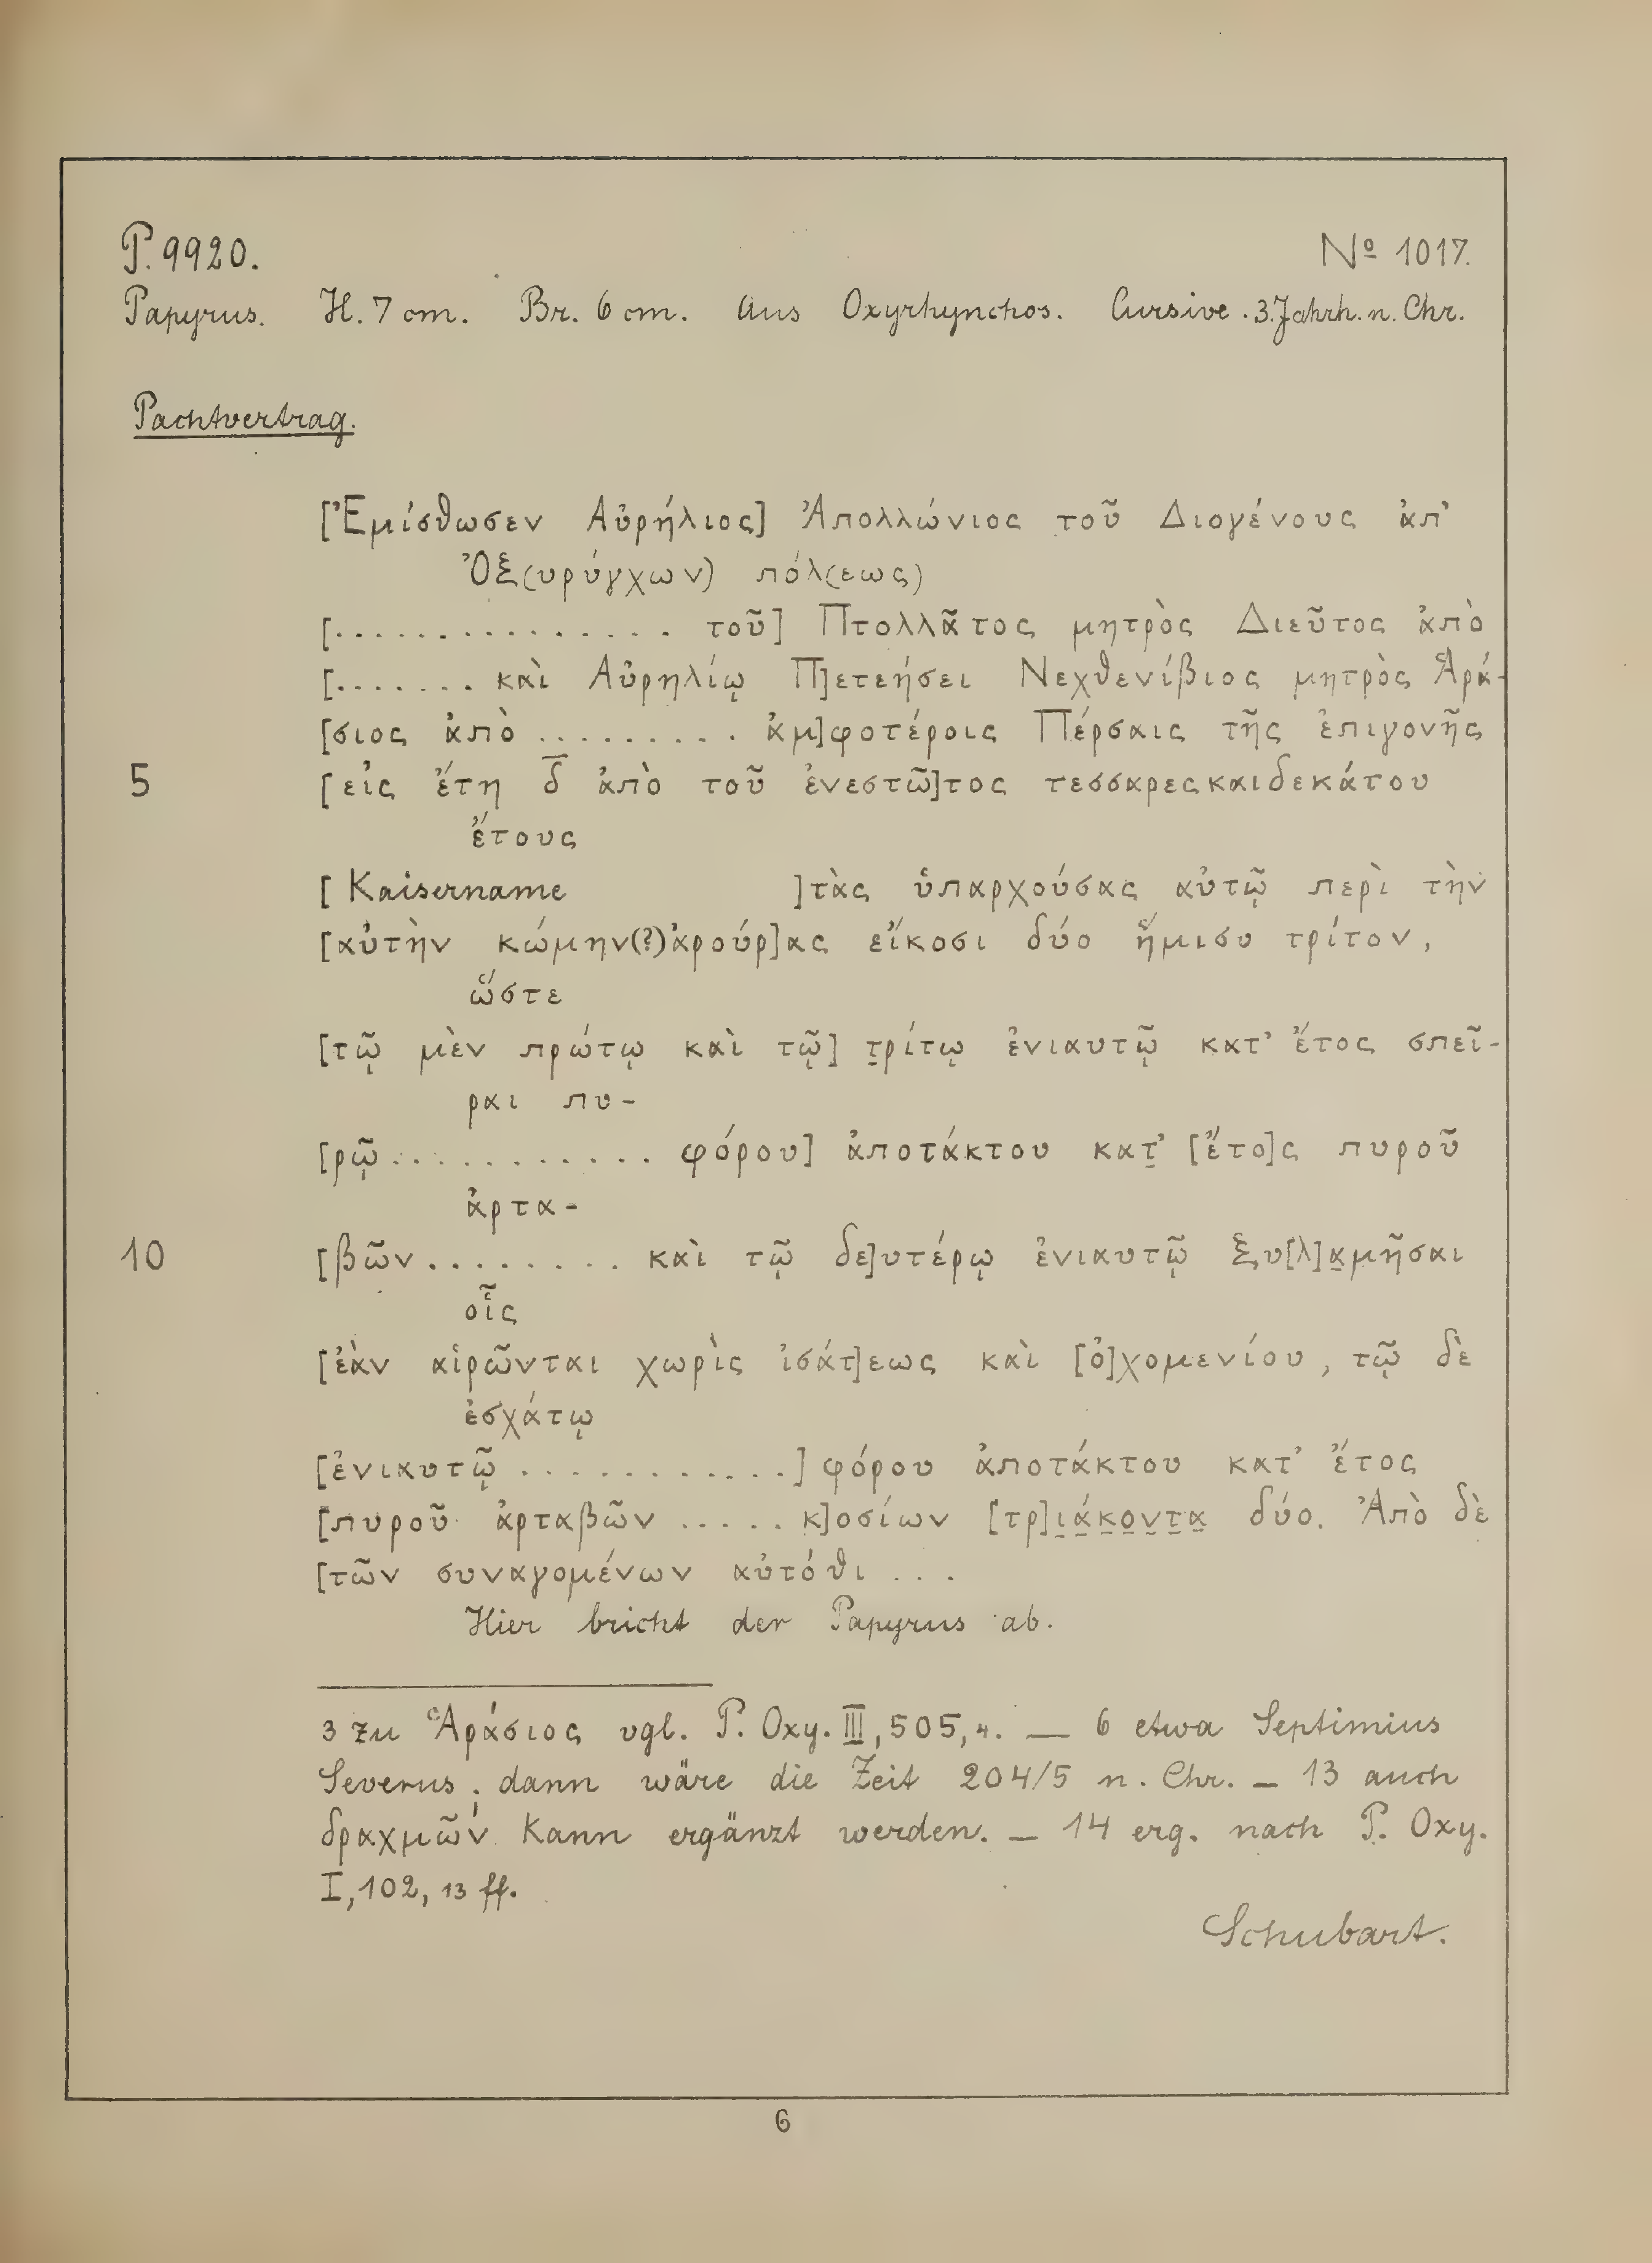 P. 9920. Nº 1017.
Papyrus. H. 7 cm. Br. 6 cm. Aus Oxyrhynchos. Cursive. 3. Jahrh. n. Chr.
Pachtvertrag.
[Ἐμίσθωσεν Αὐρήλιος] Ἀπολλώνιος τοῦ Διογένους ἀπ'
Ὀξ(υρύγχων) πόλ(εως)
[............... τοῦ] Πτολλᾶτος μητρὸς Διεῦτος ἀπὸ
[....... καὶ Αὐρηλίῳ Π]ετεήσει Νεχθενίβιος μητρὸς Ἁρά-
[σιος ἀπὸ ......... ἀμ]φοτέροις Πέρσαις τῆς ἐπιγονῆς
5 [εἰς ἔτη δ̅ ἀπὸ τοῦ ἐνεστῶ]τος τεσσαρεςκαιδεκάτου
ἔτους
[ Kaisername ]τὰς ὑπαρχούσας αὐτῷ περὶ τὴν
[αὐτὴν κώμην(?)ἀρούρ]ας εἴκοσι δύο ἥμισυ τρίτον,
ὥστε
[τῷ μὲν πρώτῳ καὶ τῷ] τ̣ρίτῳ ἐνιαυτῷ κατ' ἔτος σπεῖ-
ραι πυ-
[ρῷ........... φόρου] ἀποτάκτου κατ̣' [ἔτο]ς πυροῦ
ἀρτα-
10 [βῶν........ καὶ τῷ δε]υτέρῳ ἐνιαυτῷ ξυ[λ]α̣μῆσαι
οἷς
[ἐὰν αἱρῶνται χωρὶς ἰσάτ]εως καὶ [ὀ]χομενίου, τῷ δὲ
ἐσχάτῳ
[ἐνιαυτῷ ............] φόρου ἀποτάκτου κατ' ἔτος
[πυροῦ ἀρταβῶν ..... κ]οσίων [τρ]ι̣ά̣κ̣ο̣ν̣τ̣α̣ δύο. Ἀπὸ δὲ
[τῶν συναγομένων αὐτόθι ...
Hier bricht der Papyrus ab.
3 zu Ἁράσιος vgl. P. Oxy. III, 505, 4. — 6 etwa Septimius
Severus; dann wäre die Zeit 204/5 n. Chr. — 13 auch
δραχμῶν kann ergänzt werden. — 14 erg. nach P. Oxy.
I, 102, 13 ff.
Schubart.
6